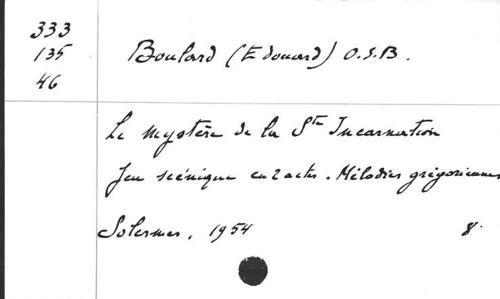 333
135
46
Boulard (Edouard) O.S.B.
Le mystère de la Ste Incarnation
Jeu scénique en 2 actes. Mélodies grégoriennes
Solesmes, 1954 8°